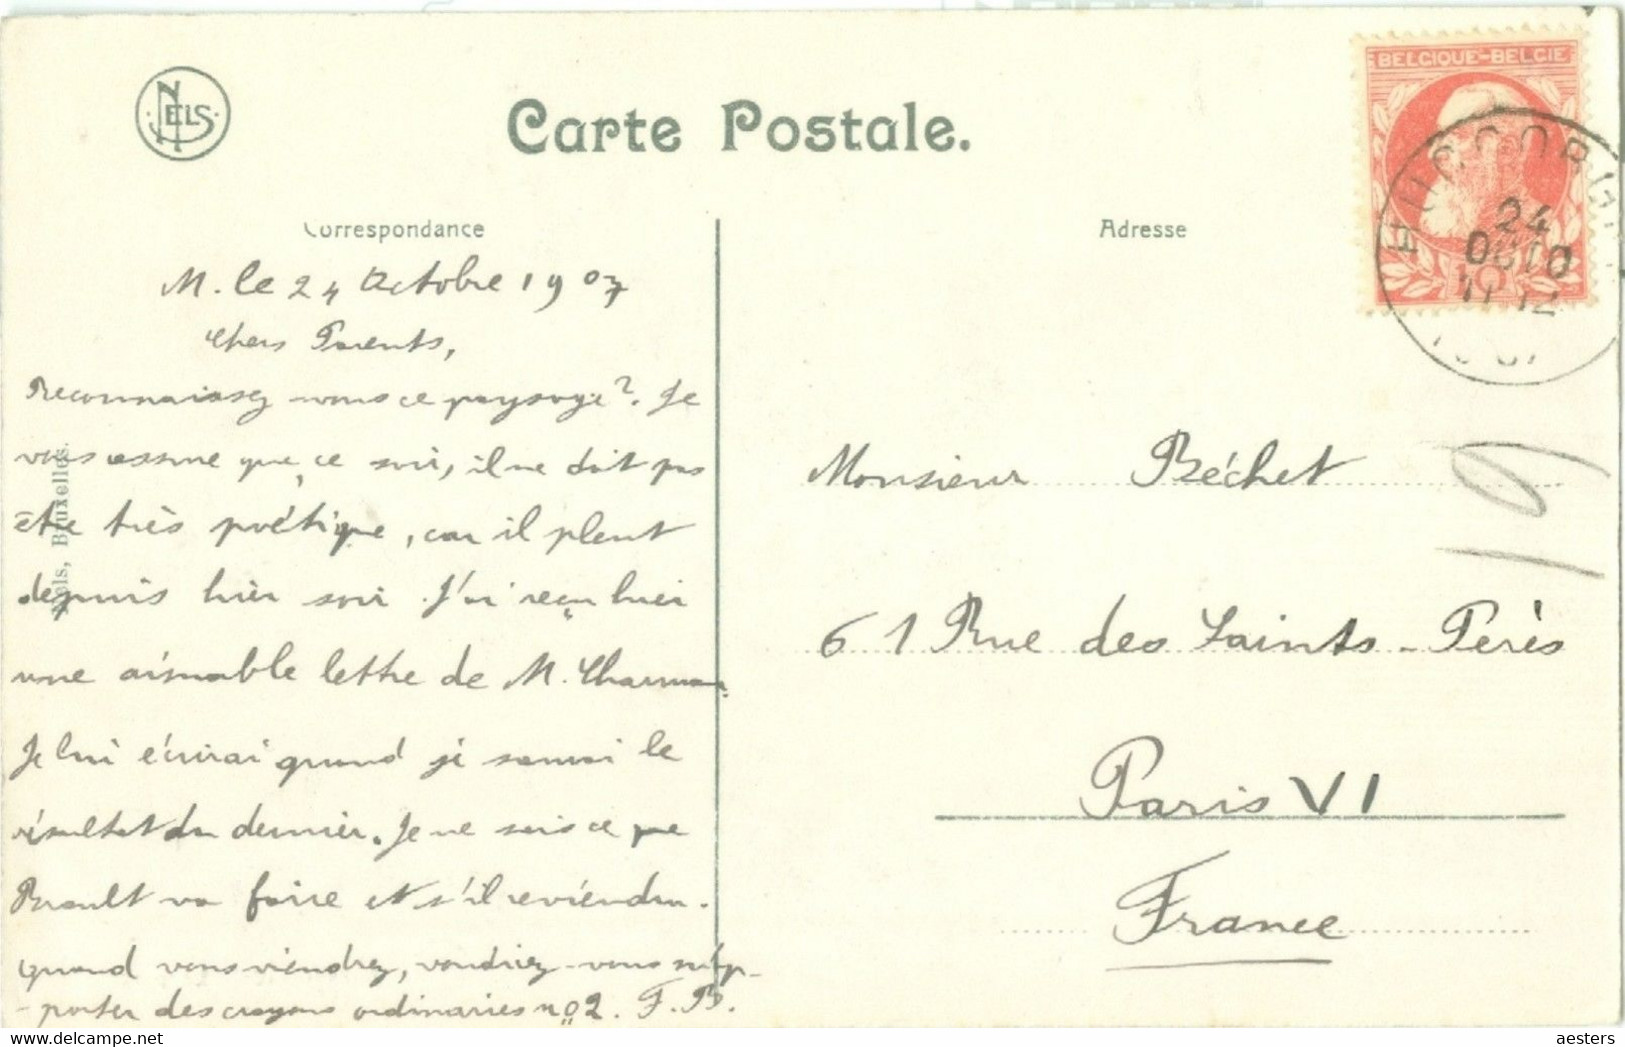 NELS
Carte Postale.
BELGIQUE-BELGIE
24
OCTO
11-12
1907
Correspondance
Adresse
M. le 24 Octobre 1907
Chers Parents,
Reconnaissez vous ce paysage? Je
vous assure que, ce soir, il ne doit pas
être très poétique, car il pleut
depuis hier soir. J'ai reçu hier
une aimable lettre de M.
Je lui écrirai quand je saurai le
résultat du dernier. Je ne sais ce que
va faire et s'il reviendra.
Quand vous viendrez, voudriez-vous m'ap-
-porter des crayons ordinaires no 2. F.B.
Nels, Bruxelles.
Monsieur Béchet
61 Rue des Saints-Pères
Paris VI
France
19
aesters